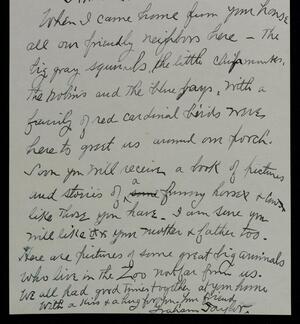 When I came home from your house
all our friendly neighbors here - the
big gray squirrels, the little chipmunks,
the robins and the blue jays, with a
family of red cardinal birds were
here to greet us around our porch.
Soon you will receive a book of pictures
and stories of a some funny horses &
like those you have. I am sure you
will like & your mother & father too.
Here are pictures of some great big animals
who live in the Zoo not far from us.
We all had good times together at your home
With a kiss and a hug for you. Your friend,
Graham Taylor.